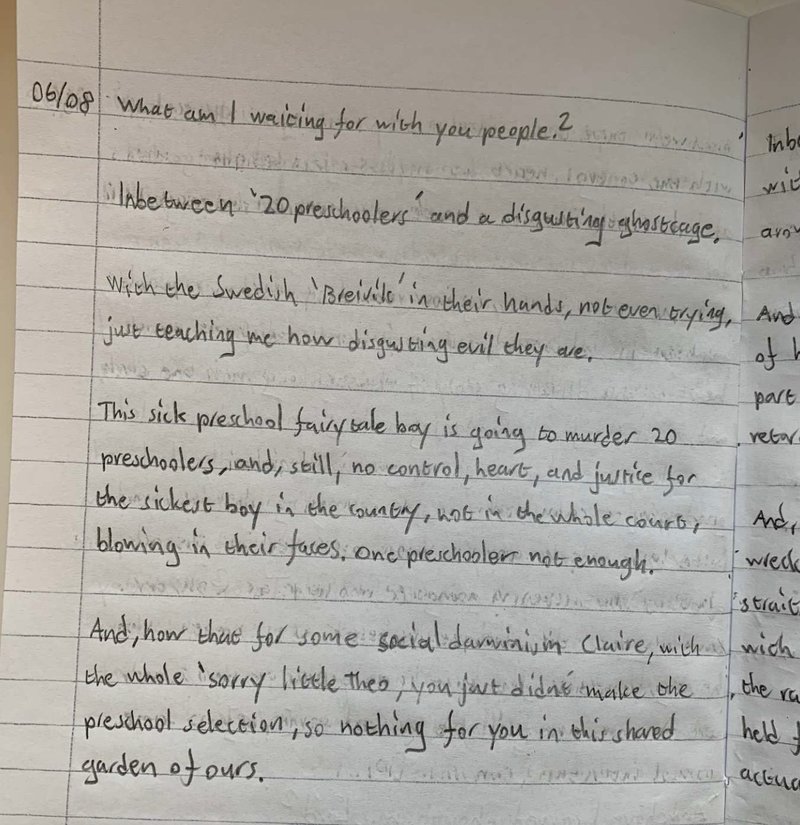 06/08 What am I waiting for with you people.?
Inbetween '20 preschoolers' and a disgusting ghostcage.
With the Swedish 'Breivik' in their hands, not even trying,
just teaching me how disgusting evil they are.
This sick preschool fairytale boy is going to murder 20
preschoolers, and, still, no control, heart, and justice for
the sickest boy in the country, not in the whole court,
blowing in their faces. One preschooler not enough.
And, how that for some social darwinism Claire, with
the whole 'sorry little Theo, you just didn't make the
preschool selection, so nothing for you in this shared
garden of ours.
And
of
part
And,
wich
held